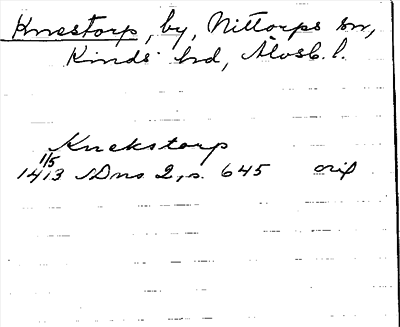 Knestorp, by, Nittorps sn,
Kinds hd, Älvsb. l.
Knekstorp
1/5
1413 SDns 2, s. 645 orig